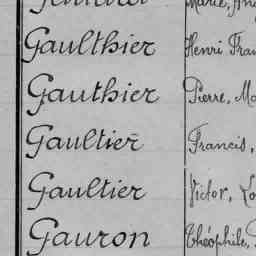 Gaulthier Henri
Gauthier Pierre,
Gaultier Francis,
Gaultier Victor,
Gauron Théophile,